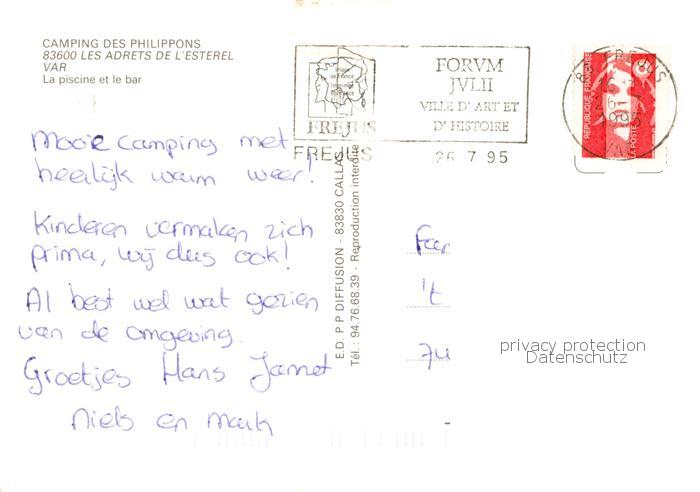 CAMPING DES PHILIPPONS
83600 LES ADRETS DE L'ESTEREL
VAR
La piscine et le bar
FREJUS
FREJUS
FORVM
JVLII
VILLE D'ART ET
D'HISTOIRE
26 7 95
REPUBLIQUE FRANÇAISE
LA POSTE
Mooie camping met
heerlijk warm weer!
Kinderen vermaken zich
prima, wij dus ook!
Al best wel wat gezien
van de omgeving.
Groetjes Hans Jannet
Niels en Mark
E.D. P P DIFFUSION - 83830 CALLAS
Tél.: 94.76.68.39 - Reproduction interdite
Fam
't
74
privacy protection
Datenschutz